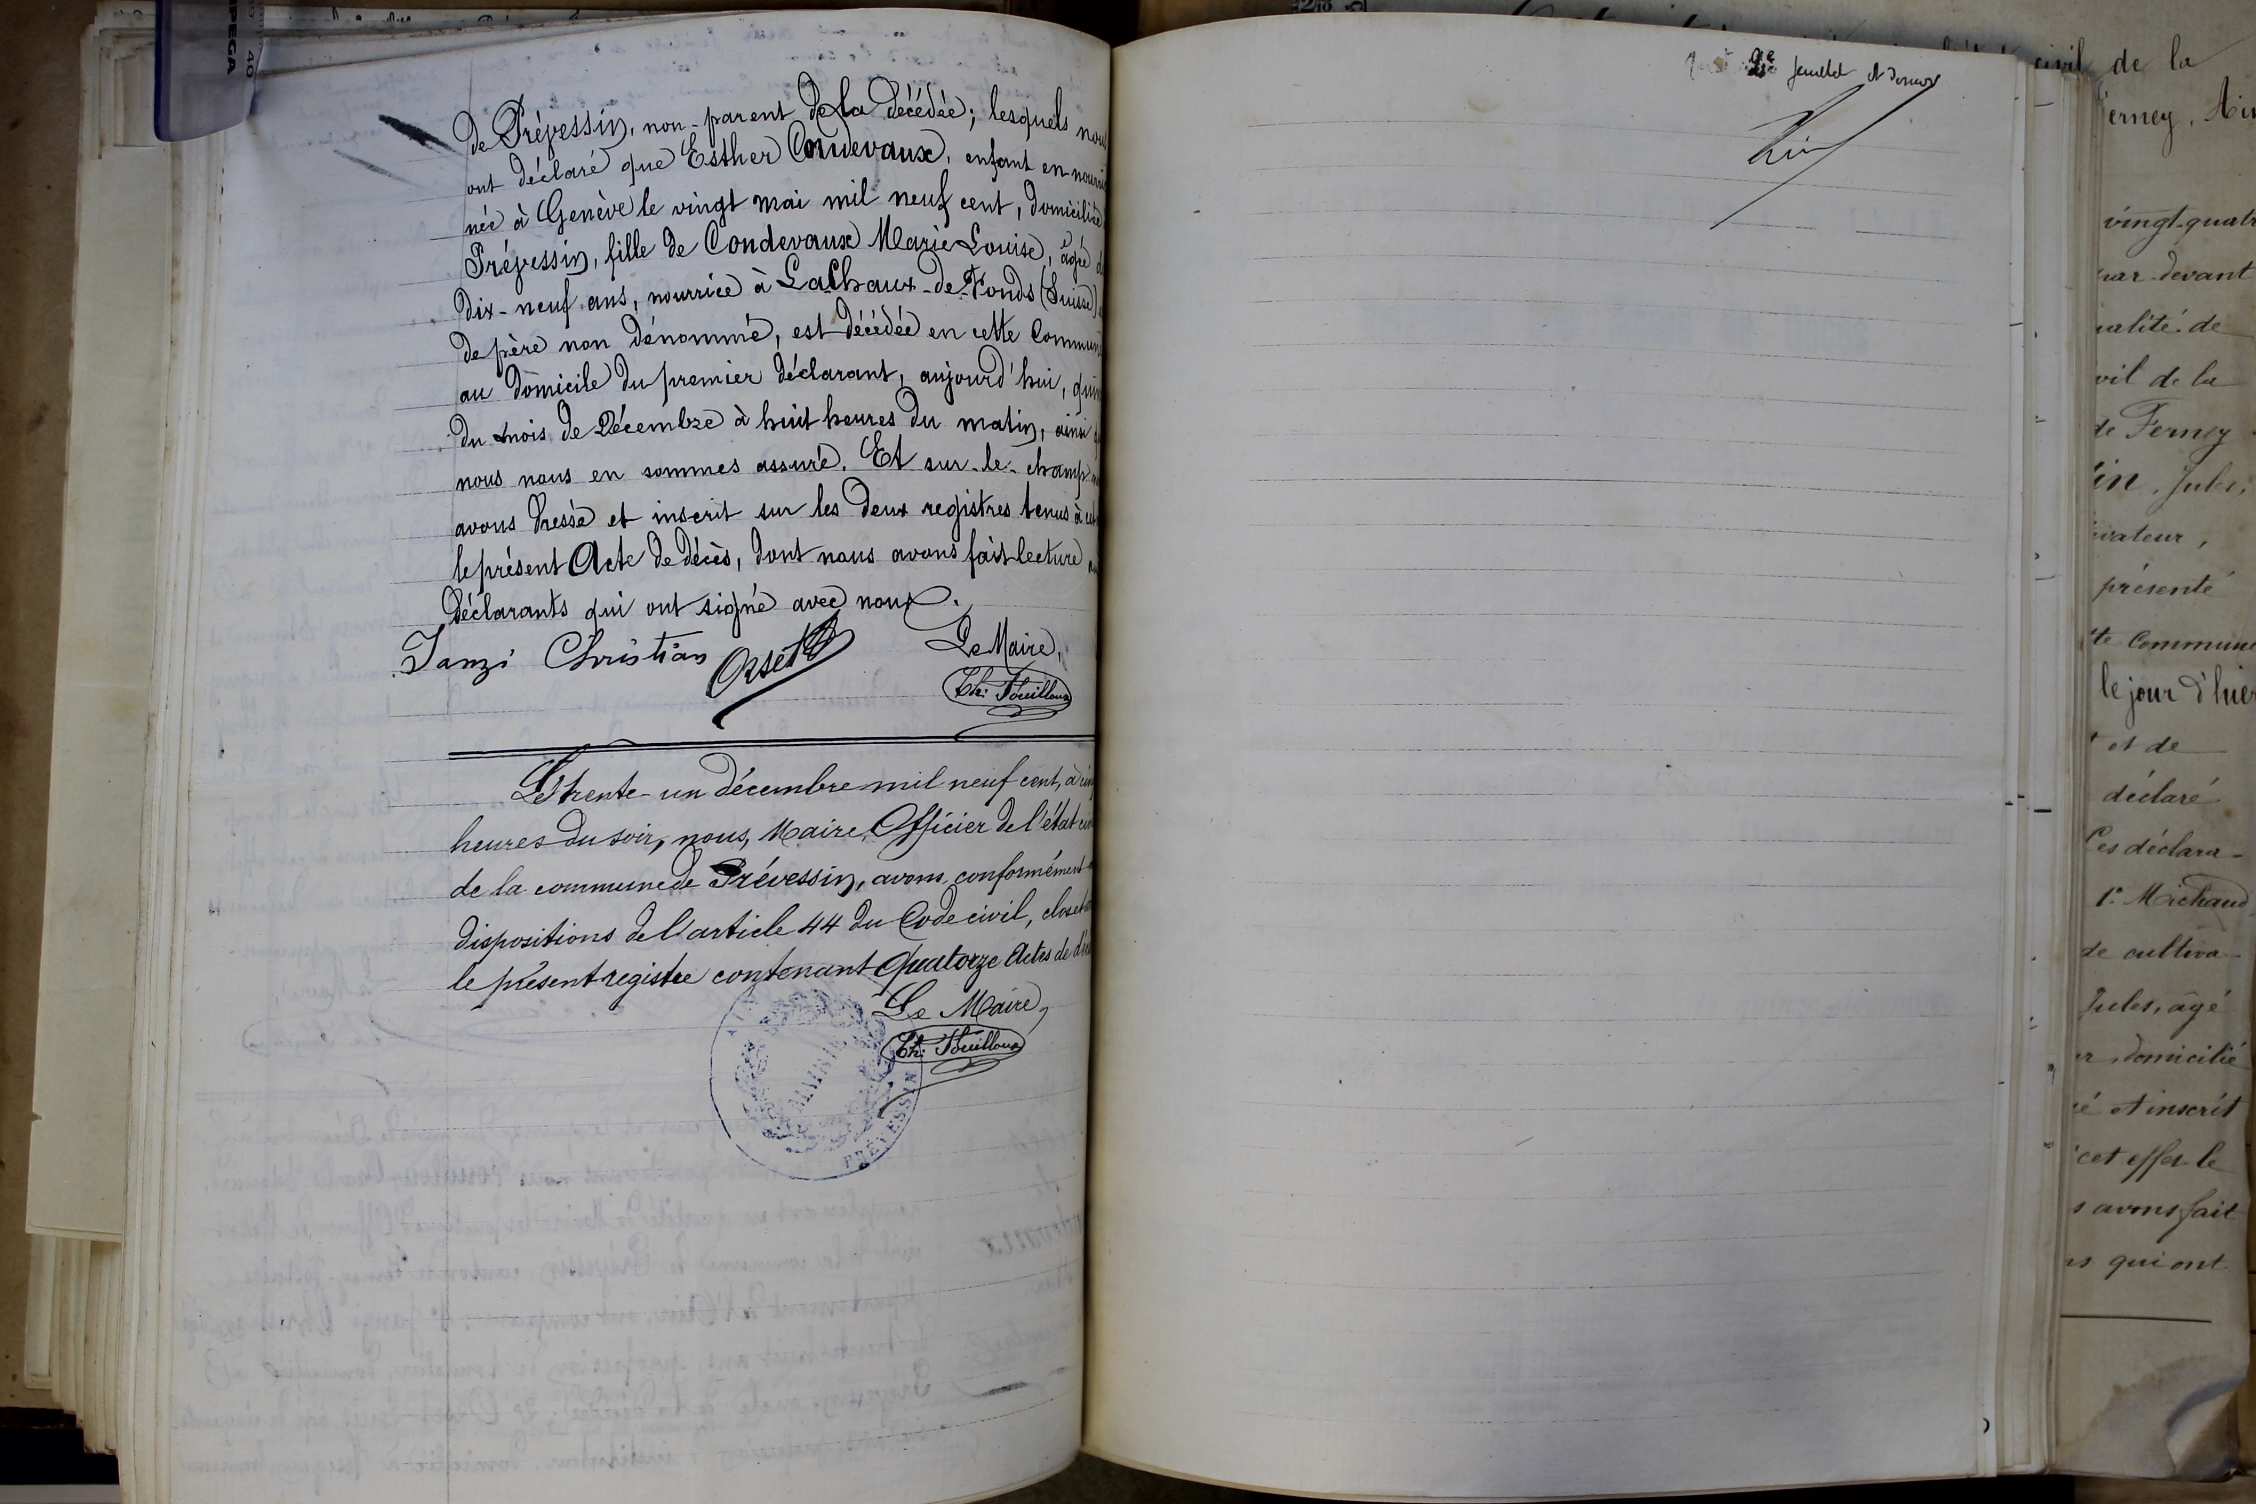 de Prévessin, non-parent de la décédée; lesquels nous
ont déclaré que Esther Condevaux, enfant en nourri
née à Genève le vingt mai mil neuf cent, domiciliée
Prévessin, fille de Condevaux Marie Louise, âgée d
dix-neuf ans, nourrice à LaChaux-de-Fonds (Suisse)
de père non dénommé, est décédée en cette Commune
au domicile du premier déclarant, aujourd'hui, quin
du mois de Décembre à huit heures du matin, ainsi q
nous nous en sommes assuré. Et sur-le-champ
avons dressé et inscrit sur les deux registres tenus à cet
le présent Acte de décès, dont nous avons fait lecture
déclarants qui ont signé avec nous.
Janzi Christian Orset Le Maire,
Th: Fouilloux
Le trente-un décembre mil neuf cent, à cinq
heures du soir, nous, Maire, Officier de l'état civ
de la commune de Prévessin, avons conformément
dispositions de l'article 44 du Code civil, clos et
le présent registre contenant Quatorze Actes de d
Le Maire,
Th: Fouilloux
MAIRIE
PRÉVESSIN
feuillet et dernier
civil de la
erney, Ain
vingt-quatr
par-devant
ualité de
vil de la
de Ferney
in, Jules,
ivateur,
présenté
te Commune
le jour d'hier
et de
déclaré
Ces déclara-
1° Michaud
de cultiva-
Jules, âgé
er, domicilié
é et inscrit
cet effet le
s avons fait
ns qui ont